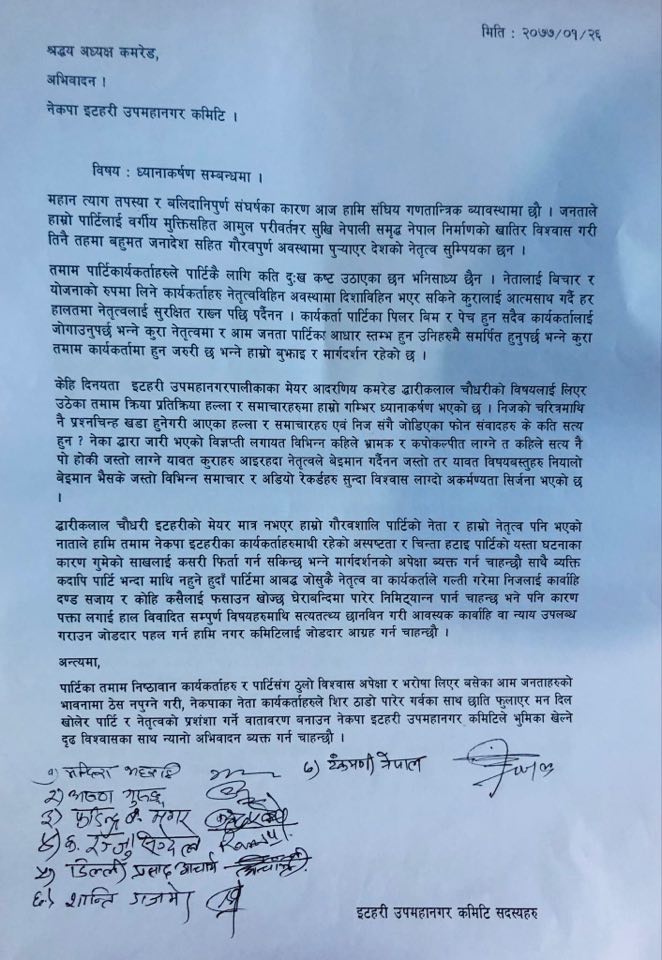 मिति : २०७७/०१/२६
श्रद्धय अध्यक्ष कमरेड,
अभिवादन ।
नेकपा इटहरी उपमहानगर कमिटि ।
विषय : ध्यानाकर्षण सम्बन्धमा ।
महान त्याग तपस्या र बलिदानिपुर्ण संघर्षका कारण आज हामि संघिय गणतान्त्रिक ब्यावस्थामा छौ । जनताले
हाम्रो पार्टिलाई वर्गीय मुक्तिसहित आमुल परीवर्तनर सुखि नेपाली समृद्ध नेपाल निर्माणको खातिर विश्वास गरी
तिनै तहमा बहुमत जनादेश सहित गौरवपुर्ण अवस्थामा पुर्‍याएर देशको नेतृत्व सुम्पियका छन ।
तमाम पार्टिकार्यकर्ताहरुले पार्टिकै लागि कति दुःख कष्ट उठाएका छन भनिसाध्य छैन । नेतालाई विचार र
योजनाको रुपमा लिने कार्यकर्ताहरु नेतृत्वविहिन अवस्थामा दिशाविहिन भएर सकिने कुरालाई आत्मसाथ गर्दै हर
हालतमा नेतृत्वलाई सुरक्षित राख्न पछि पर्दैनन । कार्यकर्ता पार्टिका पिलर बिम र पेच हुन सदैव कार्यकर्तालाई
जोगाउनुपर्छ भन्ने कुरा नेतृत्वमा र आम जनता पार्टिका आधार स्तम्भ हुन उनिहरुमै समर्पित हुनुपर्छ भन्ने कुरा
तमाम कार्यकर्तामा हुन जरुरी छ भन्ने हाम्रो बुझाइ र मार्गदर्शन रहेको छ ।
केहि दिनयता इटहरी उपमहानगरपालीकाका मेयर आदरणिय कमरेड द्धारीकलाल चौधरीको विषयलाई लिएर
उठेका तमाम क्रिया प्रतिक्रिया हल्ला र समाचारहरुमा हाम्रो गम्भिर ध्यानाकर्षण भएको छ । निजको चरित्रमाथि
नै प्रश्नचिन्ह खडा हुनेगरी आएका हल्ला र समाचारहरु एवं निज संगै जोडिएका फोन संवादहरु के कति सत्य
हुन ? नेका द्वारा जारी भएको विज्ञप्ती लगायत विभिन्न कहिले भ्रामक र कपोकल्पीत लाग्ने त कहिले सत्य नै
पो होकी जस्तो लाग्ने यावत कुराहरु आइरहदा नेतृत्वले बेइमान गर्दैनन जस्तो तर यावत विषयबस्तुहरु नियालो
बेइमान भैसके जस्तो विभिन्न समाचार र अडियो रेकर्डहरु सुन्दा विश्वास लाग्दो अकर्मण्यता सिर्जना भएको छ
।
द्धारीकलाल चौधरी इटहरीको मेयर मात्र नभएर हाम्रो गौरवशालि पार्टिको नेता र हाम्रो नेतृत्व पनि भएको
नाताले हामि तमाम नेकपा इटहरीका कार्यकर्ताहरुमाथी रहेको अस्पष्टता र चिन्ता हटाइ पार्टिको यस्ता घटनाका
कारण गुमेको साखलाई कसरी फिर्ता गर्न सकिन्छ भन्ने मार्गदर्शनको अपेक्षा ब्यक्त गर्न चाहन्छौ साथै ब्यक्ति
कदापि पार्टि भन्दा माथि नहुने हुदाँ पार्टिमा आबद्ध जोसुकै नेतृत्व वा कार्यकर्ताले गल्ती गरेमा निजलाई कार्वाहि
दण्ड सजाय र कोहि कसैलाई फसाउन खोज्छ घेराबन्दिमा पारेर निमिट्यान्न पार्न चाहन्छ भने पनि कारण
पक्ता लगाई हाल विवादित सम्पुर्ण विषयहरुमाथि सत्यतत्थ्य छानविन गरी आवस्यक कार्वाहि वा न्याय उपलब्ध
गराउन जोडदार पहल गर्न हामि नगर कमिटिलाई जोडदार आग्रह गर्न चाहन्छौ ।
अन्त्यमा,
पार्टिका तमाम निष्ठावान कार्यकर्ताहरु र पार्टिसंग ठुलो विश्वास अपेक्षा र भरोषा लिएर बसेका आम जनताहरुको
भावनामा ठेस नपुग्ने गरी, नेकपाका नेता कार्यकर्ताहरुले शिर ठाडो पारेर गर्वका साथ छाति फुलाएर मन दिल
खोलेर पार्टि र नेतृत्वको प्रशंशा गर्ने वातावरण बनाउन नेकपा इटहरी उपमहानगर कमिटिले भुमिका खेल्ने
दृढ विश्वासका साथ न्यानो अभिवादन ब्यक्त गर्न चाहन्छौ ।
१)
७) नेपाल
२) गुरुङ
३) मगर
४) क. रञ्जु
५) डिल्ली प्रसाद आचार्य
६) शान्ति
इटहरी उपमहानगर कमिटि सदस्यहरु